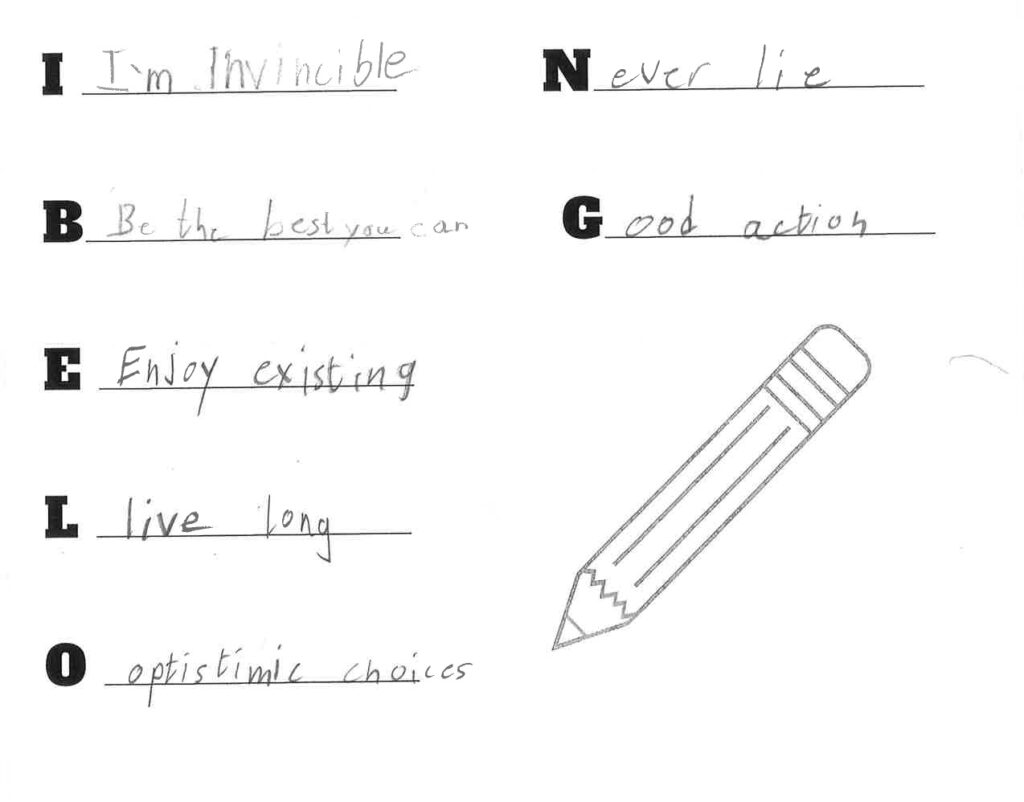 I I'm Invincible
B Be the best you can
E Enjoy existing
L live long
O optistimic choices
N ever lie
G ood action